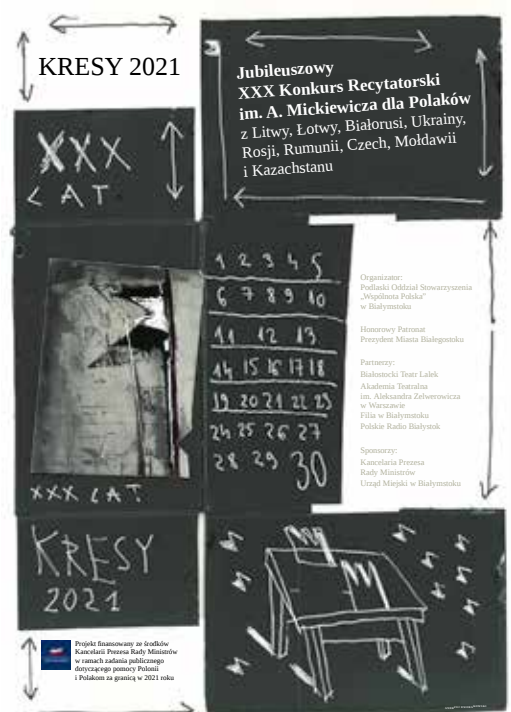 KRESY 2021
Jubileuszowy
XXX Konkurs Recytatorski
im. A. Mickiewicza dla Polaków
z Litwy, Łotwy, Białorusi, Ukrainy,
Rosji, Rumunii, Czech, Mołdawii
i Kazachstanu
XXX
LAT
1 2 3 4 5
6 7 8 9 10
11 12 13
14 15 16 17 18
19 20 21 22 23
24 25 26 27
28 29 30
Organizator:
Podlaski Oddział Stowarzyszenia
„Wspólnota Polska”
w Białymstoku
Honorowy Patronat
Prezydent Miasta Białegostoku
Partnerzy:
Białostocki Teatr Lalek
Akademia Teatralna
im. Aleksandra Zelwerowicza
w Warszawie
Filia w Białymstoku
Polskie Radio Białystok
Sponsorzy:
Kancelaria Prezesa
Rady Ministrów
Urząd Miejski w Białymstoku
XXX LAT
KRESY
2021
Projekt finansowany ze środków
Kancelarii Prezesa Rady Ministrów
w ramach zadania publicznego
dotyczącego pomocy Polonii
i Polakom za granicą w 2021 roku